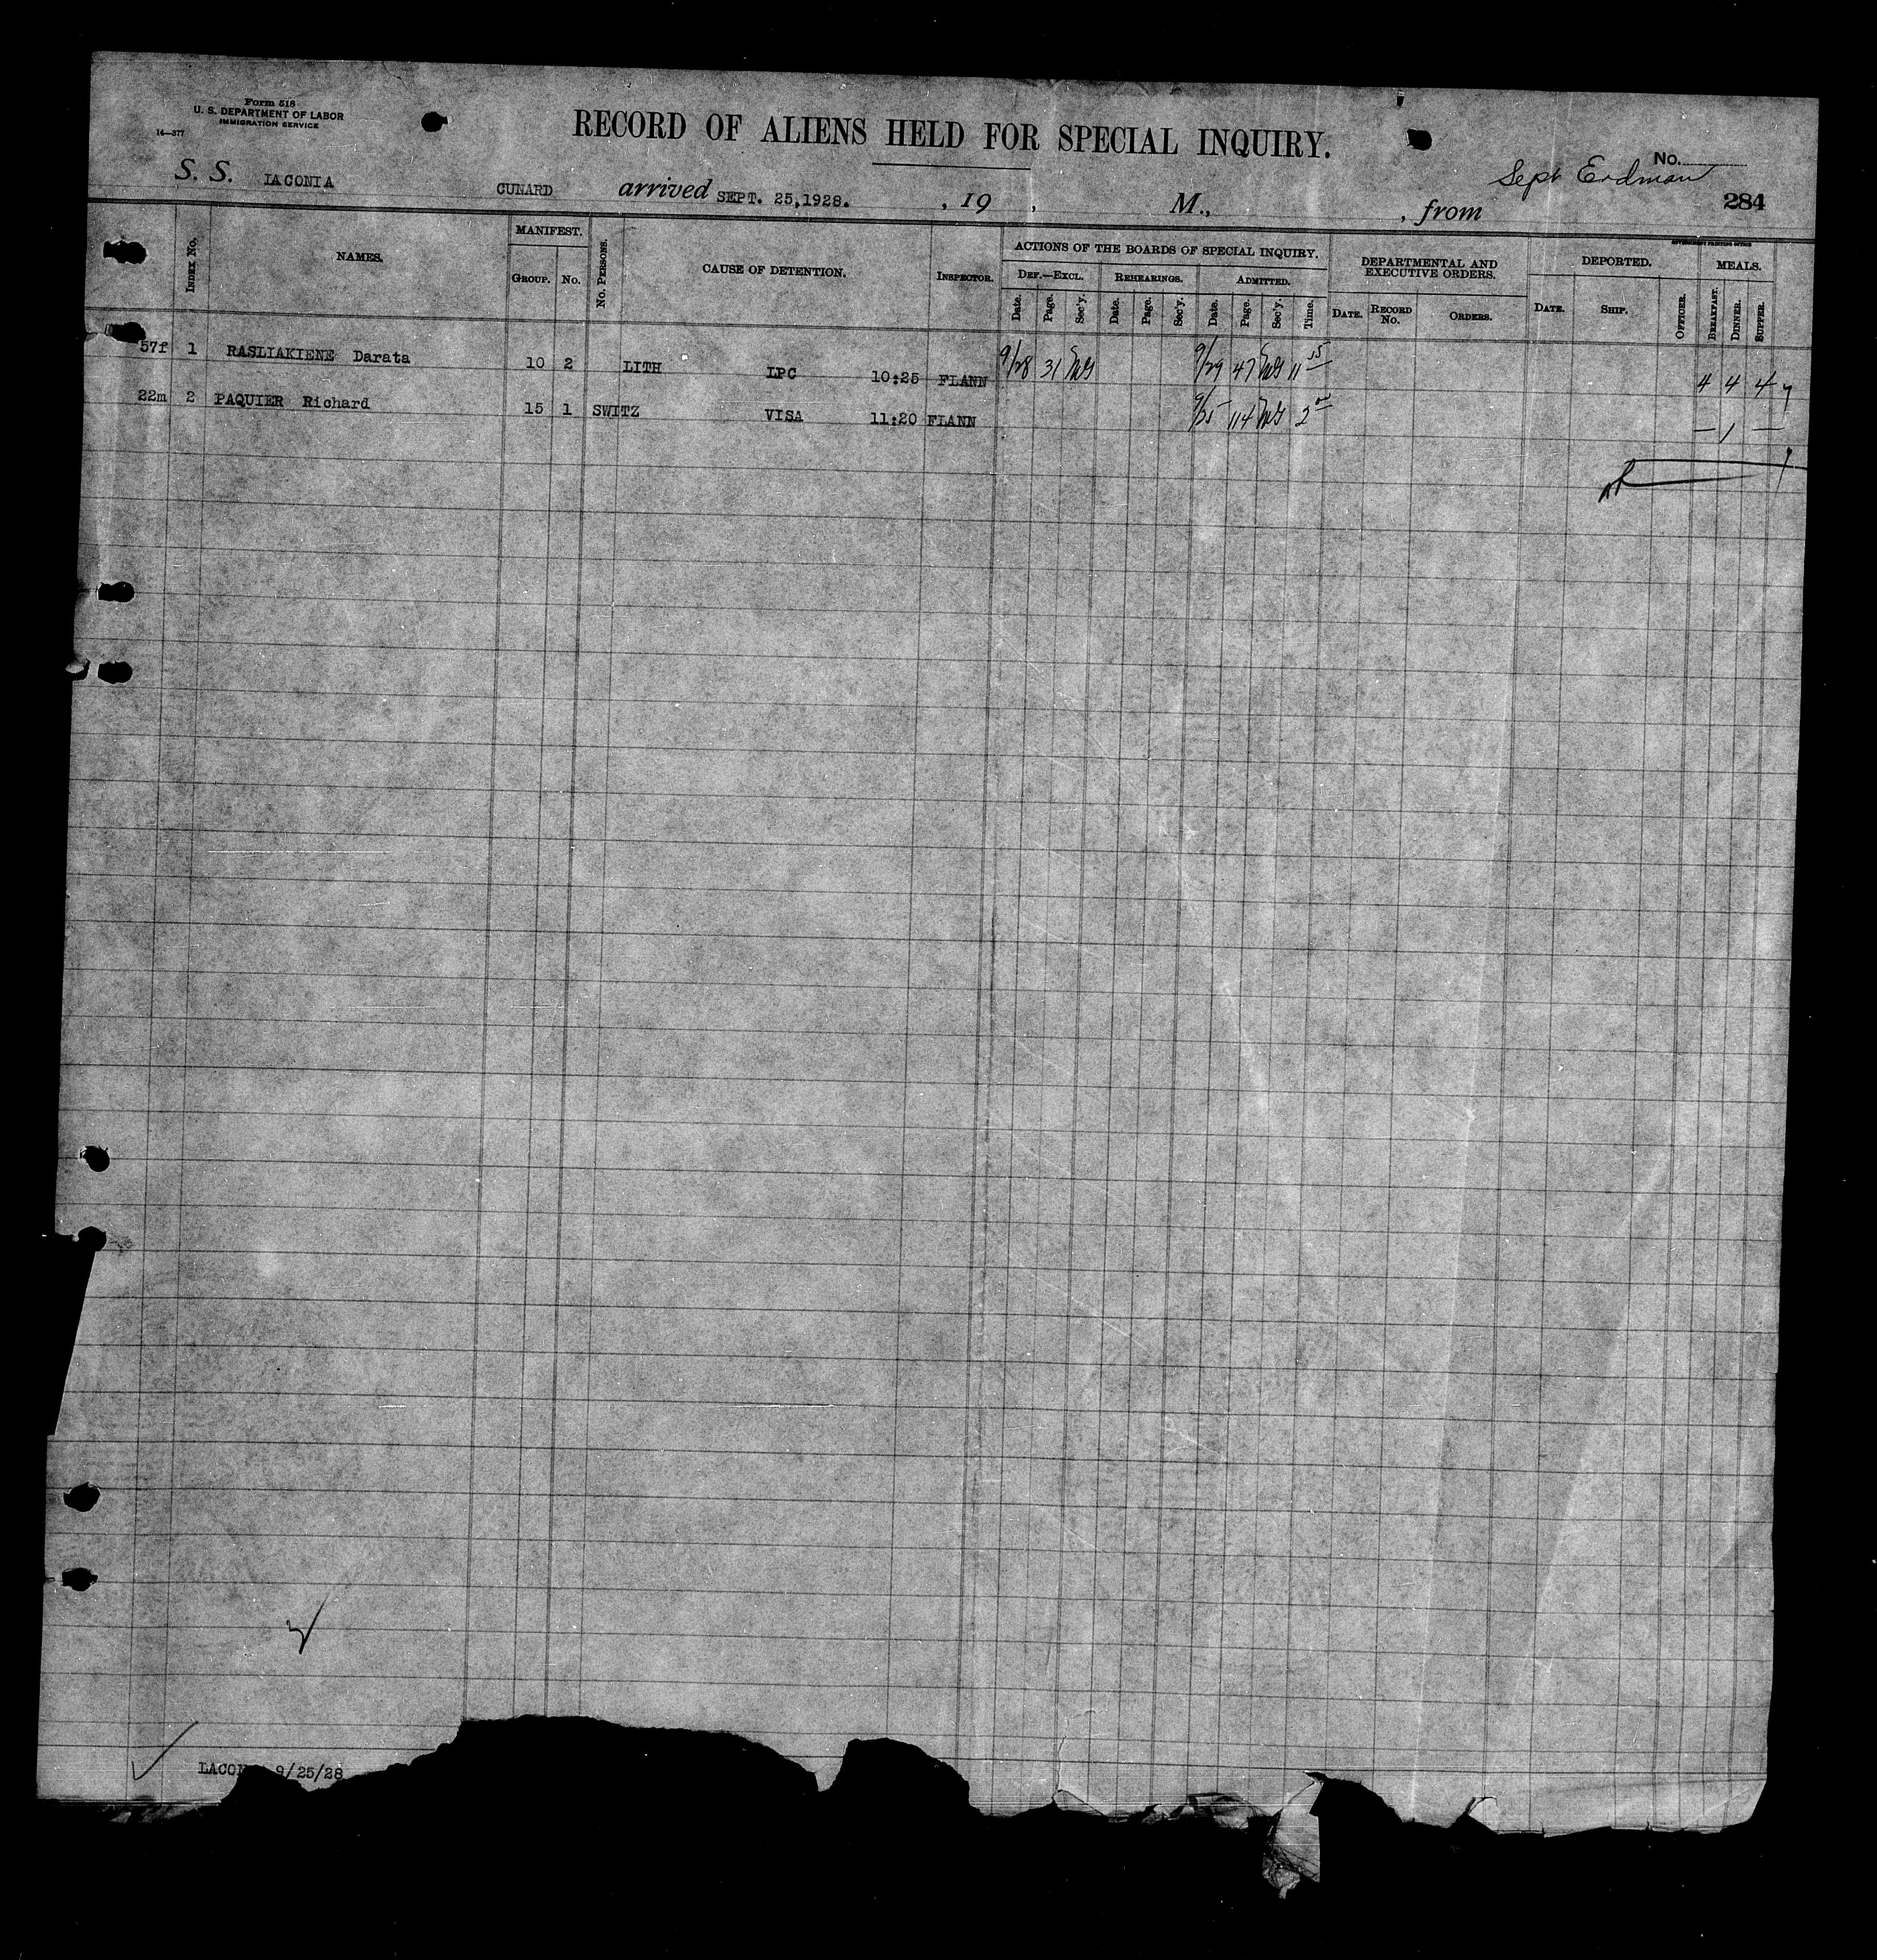 Form 518
U. S. DEPARTMENT OF LABOR
IMMIGRATION SERVICE
14—377
RECORD OF ALIENS HELD FOR SPECIAL INQUIRY.
No.
Sept Erdman
S. S. LACONIA CUNARD arrived SEPT. 25,1928. , 19 , M., , from 284
GOVERNMENT PRINTING OFFICE
INDEX No. NAMES. MANIFEST. GROUP. No. No. PERSONS. CAUSE OF DETENTION. INSPECTOR. ACTIONS OF THE BOARDS OF SPECIAL INQUIRY. DEPARTMENTAL AND EXECUTIVE ORDERS. DEPORTED. MEALS.
DEF.—EXCL. REHEARINGS. ADMITTED.
Date. Page. Sec'y. Date. Page. Sec'y. Date. Page. Sec'y. Time. DATE. RECORD No. ORDERS. DATE. SHIP. OFFICER. BREAKFAST. DINNER. SUPPER.
57f 1 RASLIAKIENE Darata 10 2 LITH LPC 10:25 FLANN 9/28 31 9/29 47 11 15 4 4 4
22m 2 PAQUIER Richard 15 1 SWITZ VISA 11:20 FLANN 9/25 114 2 00 — 1 —
LACON 9/25/28